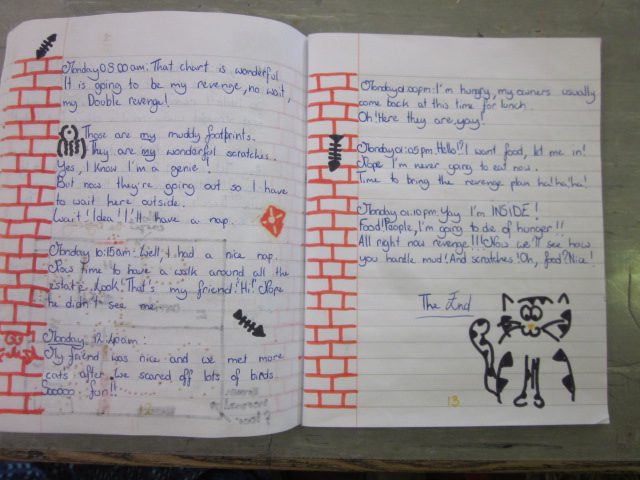 Monday 08:00am: That chart is wonderful
It is going to be my revenge, no wait,
my Double revenge!
Those are my muddy footprints.
They are my wonderful scratches.
Yes, I know I'm a genie!
But now they're going out so I have
to wait here outside.
Wait! Idea! I'll have a nap.
Monday 10:15am: Well, I had a nice nap.
Now time to have a walk around all the
estate. Look! That's my friend! "Hi!" Nope
he didn't see me.
Monday 12:40am:
My friend was nice and we met more
cats after we scared off lots of birds.
Sooooo fun!!
12
Monday 01:00pm: I'm hungry, my owners usually
come back at this time for lunch.
Oh! Here they are, yay!
Monday 01:05pm Hello!? I want food, let me in!
Nope I'm never going to eat now.
Time to bring the revenge plan ha! ha! ha!
Monday 01:10pm: Yay I'm INSIDE!
Food! People, I'm going to die of hunger!!
All right now revenge!!! Now we'll see how
you handle mud! And scratches! Oh, food? Nice!
The End
13